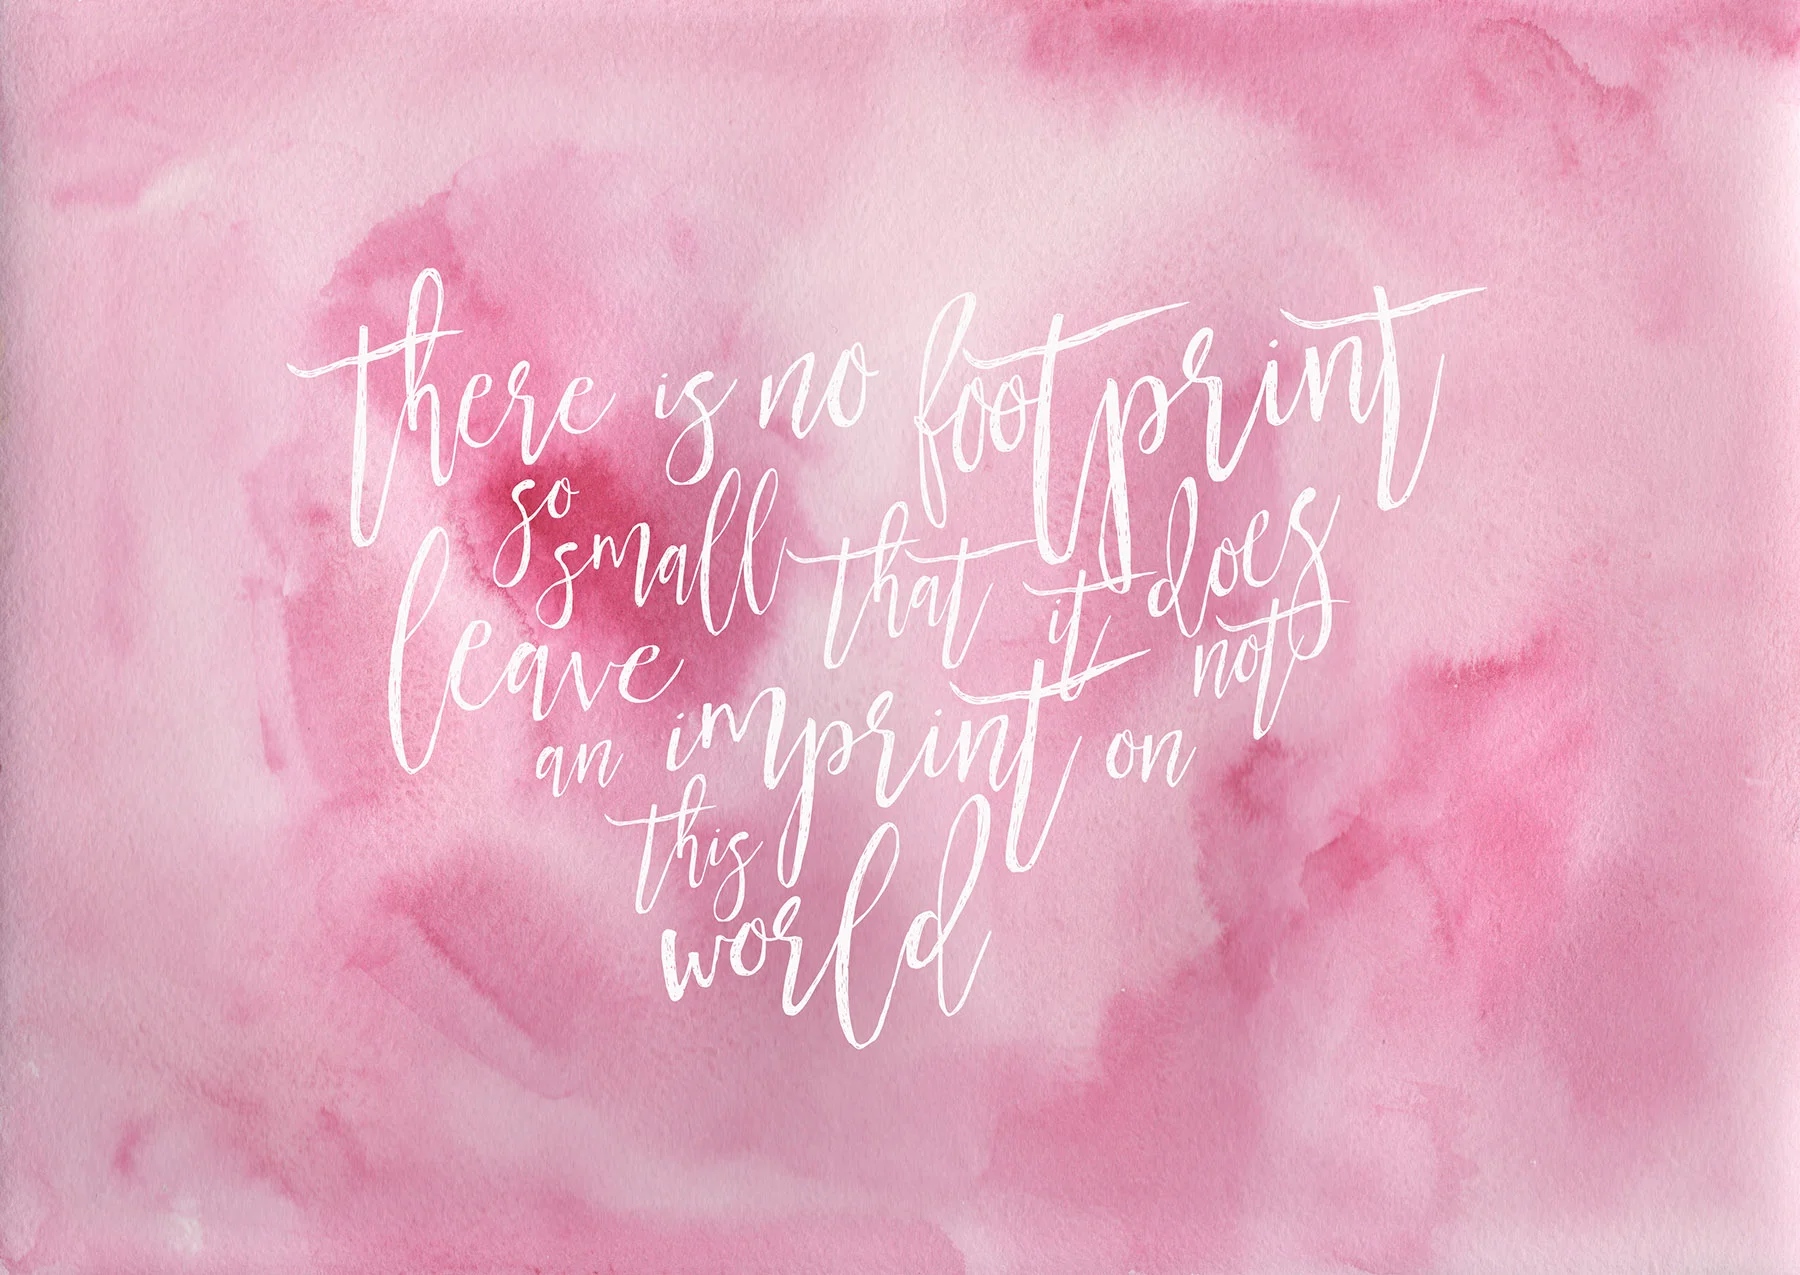 there is no footprint
so small that it does not
leave an imprint on
this
world